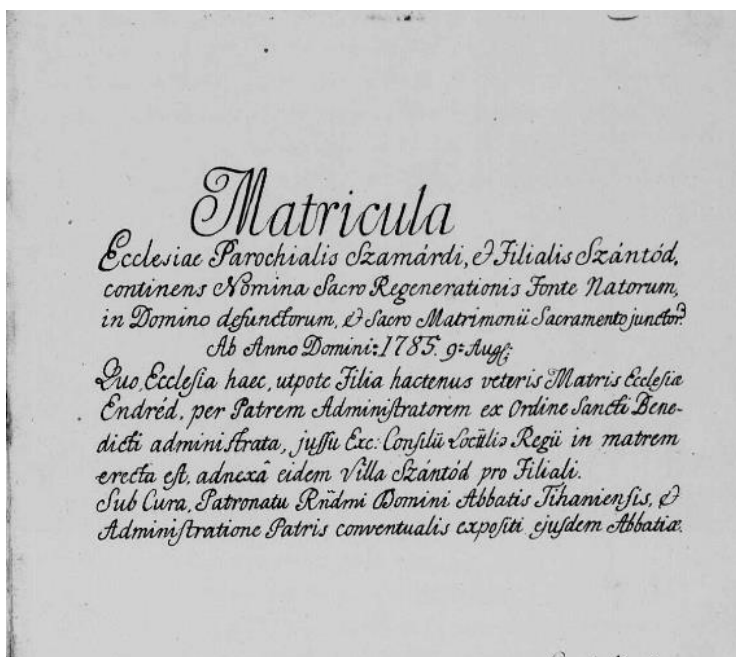 Matricula
Ecclesiae Parochialis Szamárdi, & Filialis Szántód,
continens Nomina Sacro Regenerationis Fonte Natorum,
in Domino defunctorum, & Sacro Matrimonii Sacramento junctor.
Ab Anno Domini: 1785. 9: Aug:
Quo, Ecclesia haec, utpote Filia hactenus veteris Matris Ecclesiæ
Endréd, per Patrem Administratorem ex Ordine Sancti Bene-
dicti administrata, jussu Exc: Consilii Regii in matrem
erecta est, adnexâ eidem Villa Szántód pro Filiali.
Sub Cura, Patronatu Rñdmi Domini Abbatis Tihaniensis, &
Administratione Patris conventualis expositi ejusdem Abbatiæ.